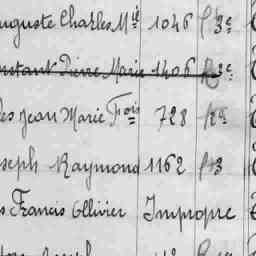 uguste Charles Mie 1046 P 3e
nstant Pierre Marie 1406 R 3e
es Jean Marie Fois 728
seph Raymond 1162 P 3
s Francis Ollivier Impropre